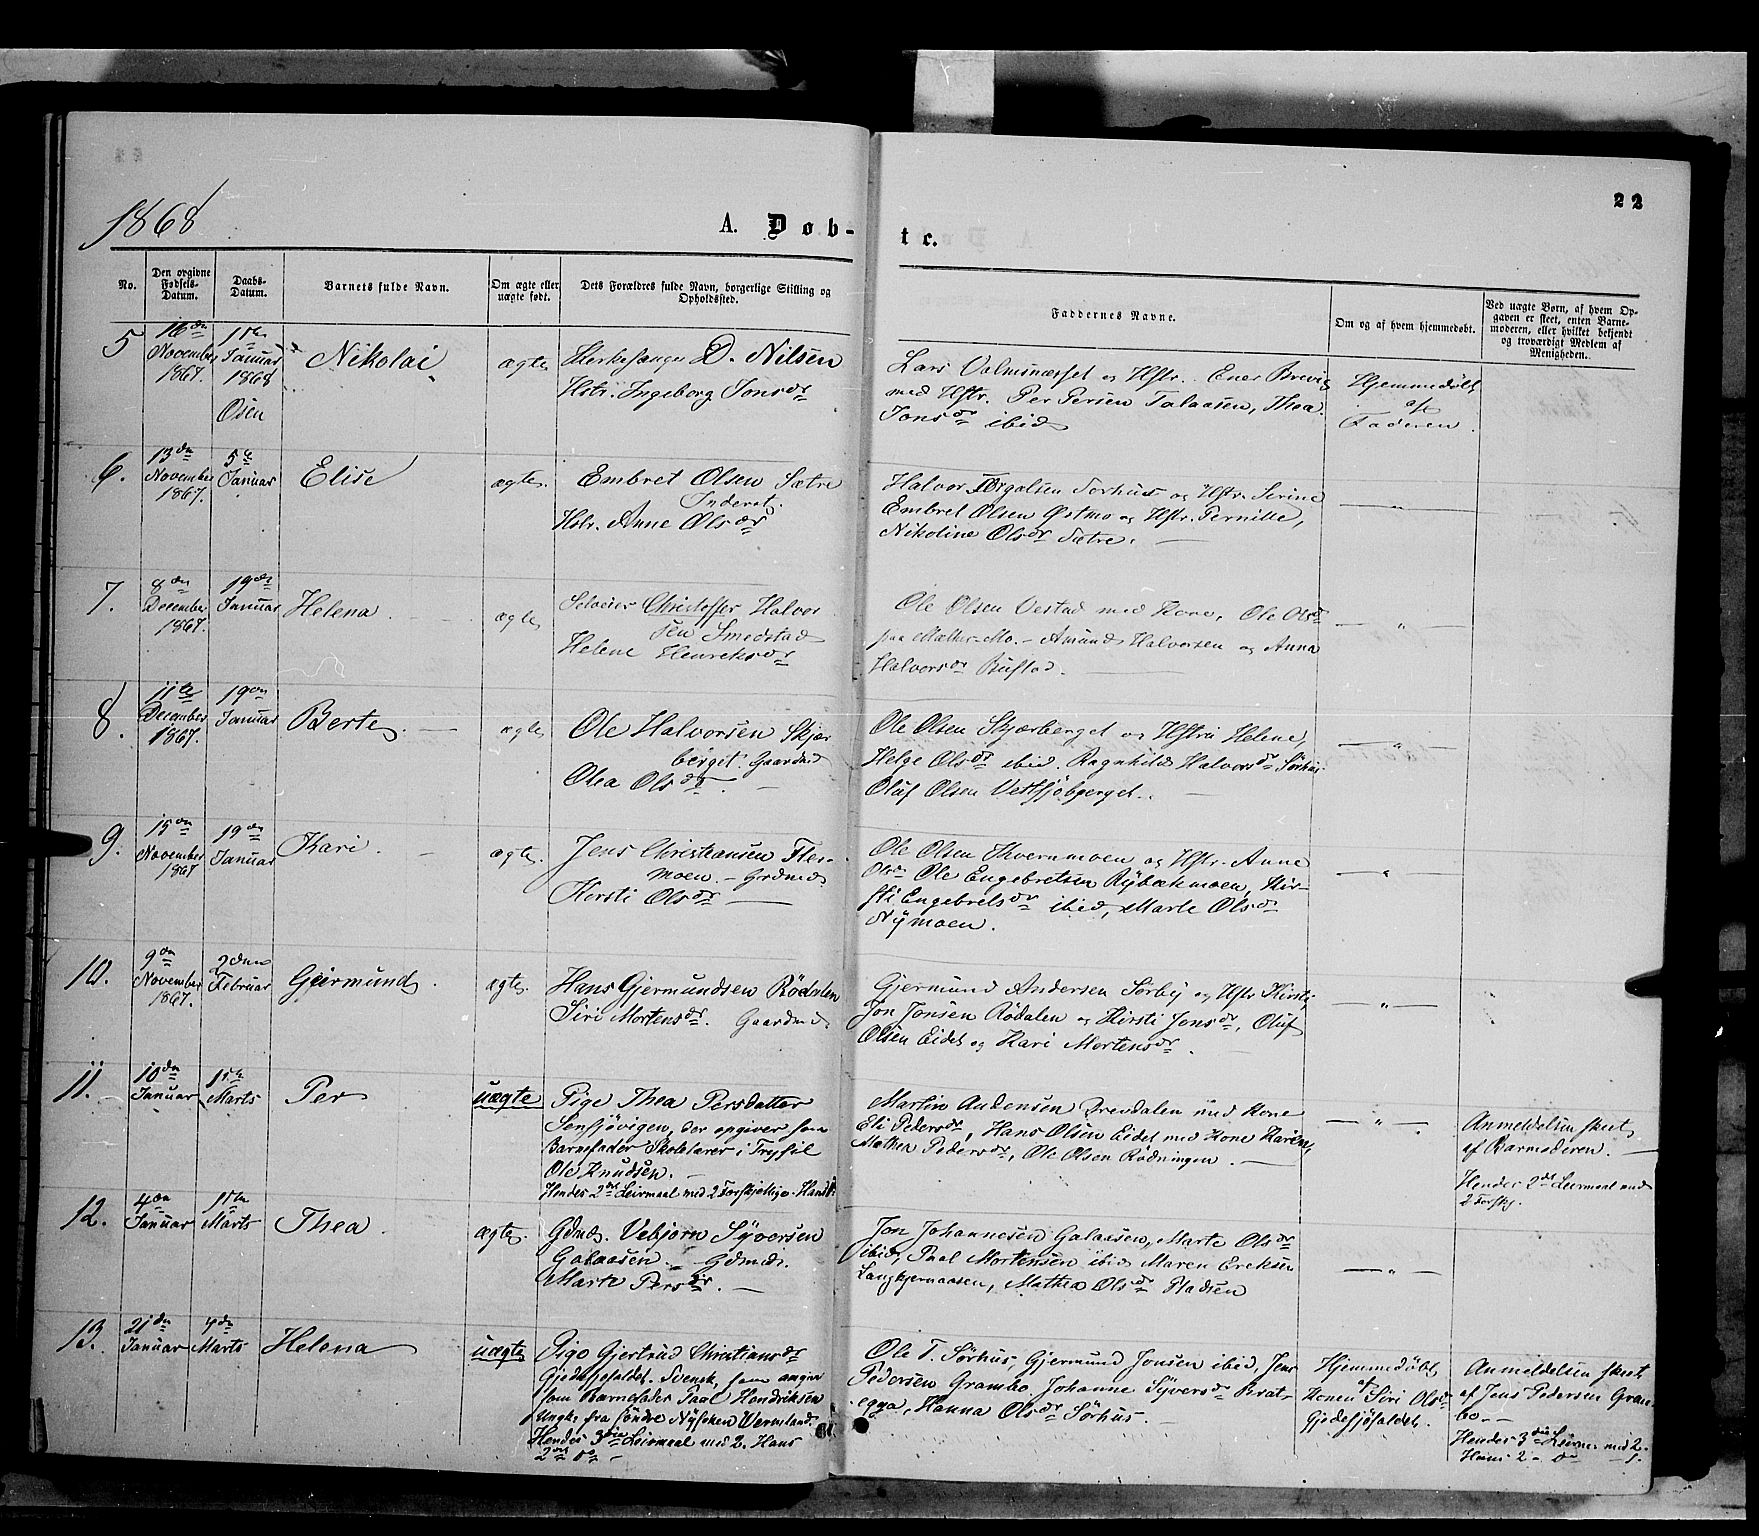 22
1868
A. Døb-
te.
No.
Den opgivne Fødsels-Datum.
Daabs-Datum.
Barnets fulde Navn.
Om ægte eller uægte født.
Dets Forældres fulde Navn, borgerlige Stilling og Opholdssted.
Faddernes Navne.
Om og af hvem hjemmedøbt.
Ved uægte Børn, af hvem Opgaven er skeet, enten Barnemoderen, eller hvilket bekjendt og troværdigt Medlem af Menigheden.
5
16de November 1867.
1ste Januar 1868 Osen
Nikolai
ægte
Kirkesanger D. Nilsen
Hstr. Ingeborg Jonsdr
Lars Valmsnæsset og Hstr. Ener Brevig
med Hstr. Per Persen Talaasen, Thea
Jonsdr ibid
Hjemmedøbt
af
Faderen.
6.
13de November 1867.
5te Januar
Elise
ægte.
Embret Olsen Sætre
Inderet.
Hstr. Anne Olsdr
Halvor Torgalsen Sørhus og Hstr. Serine
Embret Olsen Østmo og Hstr. Pernille,
Nikoline Olsdr Sætre. —
— " —
7.
8de December 1867.
19de Januar
Helena
ægte
Selveier Christoffer Halvor
sen Smedstad
Helene Henreksdr
Ole Olsen Vestad med Kone, Ole Olsdr
paa Mælker-Mo. - Amund Halvorsen og Anna
Halvorsdr Bustad.
— " —
8.
11te December 1867.
19de Januar
Berte
ægte
Ole Halvorsen Skjær
berget. Gaardmd
Olea Olsdr. —
Ole Olsen Skjærberget og Hstru Helene,
Helge Olsdr ibid. Ragnhild Halvorsdr Sørhus
Oluf Olsen Vestsjøberget.
— " —
9.
15de November 1867
19de Januar
Kari.
ægte.
Jens Christiansen Fler-
moen. - Grdmd
Kersti Olsdr —
Ole Olsen Kvernmoen og Hstr. Anne
Olsdr Ole Engebretsen Rybækmoen, Kir-
sti Engebretsdr ibid, Marte Olsdr
Nymoen.
— " —
10.
9de November 1867.
2den Februar
Gjermund.
ægte.
Hans Gjermundsen Rödalen
Siri Mortensdr. Gaardmd
Gjermund Andersen Sørby og Hstr Kirsti,
Jon Jonsen Rødalen og Kirsti Jonsdr, Oluf
Olsen Eidet og Kari Mortensdr.
— " —
11.
10de Januar
1ste Marts
Per
uægte
Pige Thea Persdatter
Sensjövigen, der opgiver som
Barnefader Skolelærer i Trysil
Ole Knudsen. —
Hendes 2det Leirmaal med 2 Forskjellige.
Martin Andersen Brendalen med Kone
Eli Pedersdr, Hans Olsen Eidet med Kone Karen,
Mathea Pedersdr, Ole Olsen Rødningen. —
— " —
Anmeldelsen skeet
af Barnemoderen. —
Hendes 2det Leirmaal med
2 Forskj.
12.
4de Januar
1ste Marts
Thea.
ægte.
Gdmd. Vebjørn Syversen
Galaasen - Gdmd.
Marte Persdr. —
Jon Johannesen Galaasen, Marte Olsdr
ibid, Paal Mortensen ibid Maren Ereksen
Langkjernaasen, Mathea Olsdr Pladsen
— " —
13.
21de Januar
4de Marts
Helena
uægte
Pige Gjertrud Christiansdr
Gjedesjøfaldet. Svensk, som angiver
som Barnefader Paal Hendriksen
Ungk. fra söndre Nysken Vermland.
Hendes 3die Leirmaal med 2. Hans
2det do —
Ole T. Sørhus, Gjermund Jonsen ibid, Jens
Pedersen Grambo, Johanne Syversdr Brat-
egga, Hanna Olsdr Sørhus. —
Hjemmedøbt
af
Konen Siri Olsdr
Gjedesjøfaldet.
Anmeldelsen skeet
af Jens Pedersen Gram
bo. —
Hendes 3die Leirm. med 2.
Hans 2 — do —